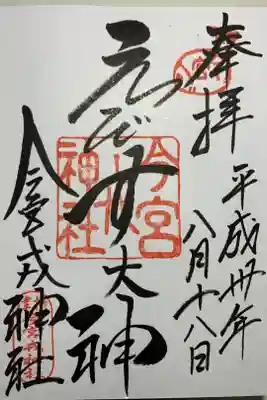 奉拝
平成卅年
八月十八日
えびす大神
今宮戎神社
今宮
戎
神社